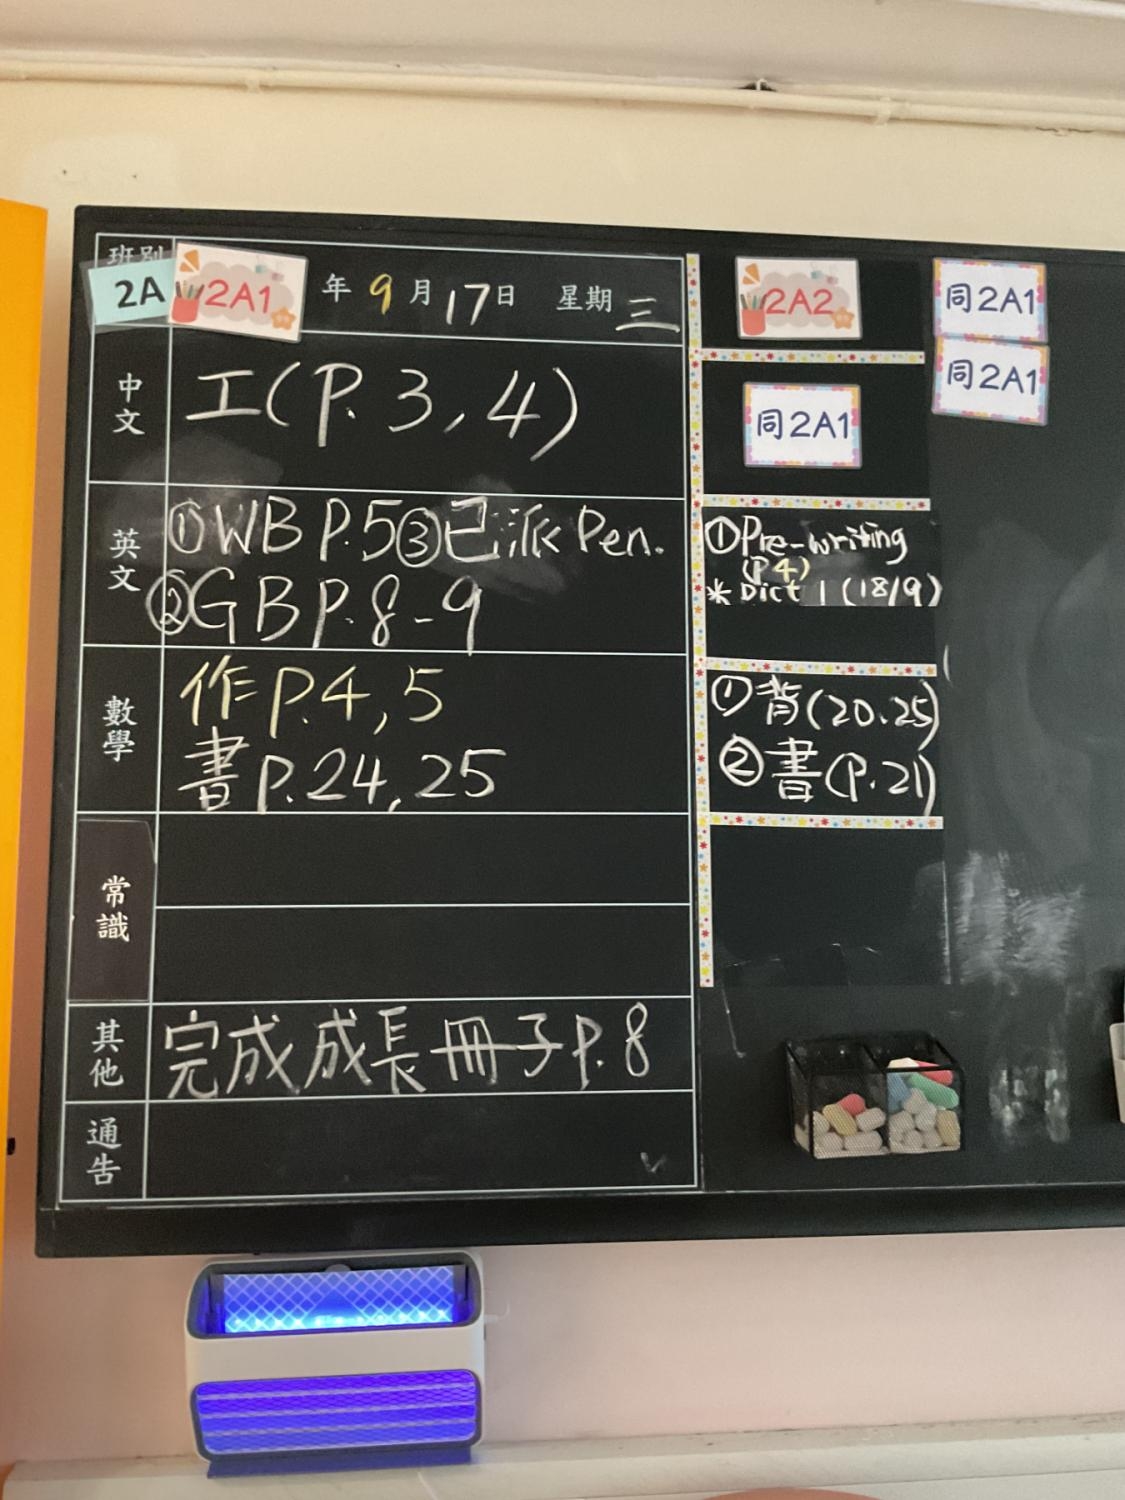 班別
2A
2A1
年 9 月 17 日 星期 三
中文
工(P.3,4)
英文
①WB P.5 ③已派 Pen.
②GB P.8-9
數學
作P.4,5
書P.24,25
常識
其他
完成成長冊子P.8
通告
2A2
同2A1
①Pre-writing
(P4)
* Dict 1 (18/9)
①背(20.25)
②書(P.21)
同2A1
同2A1